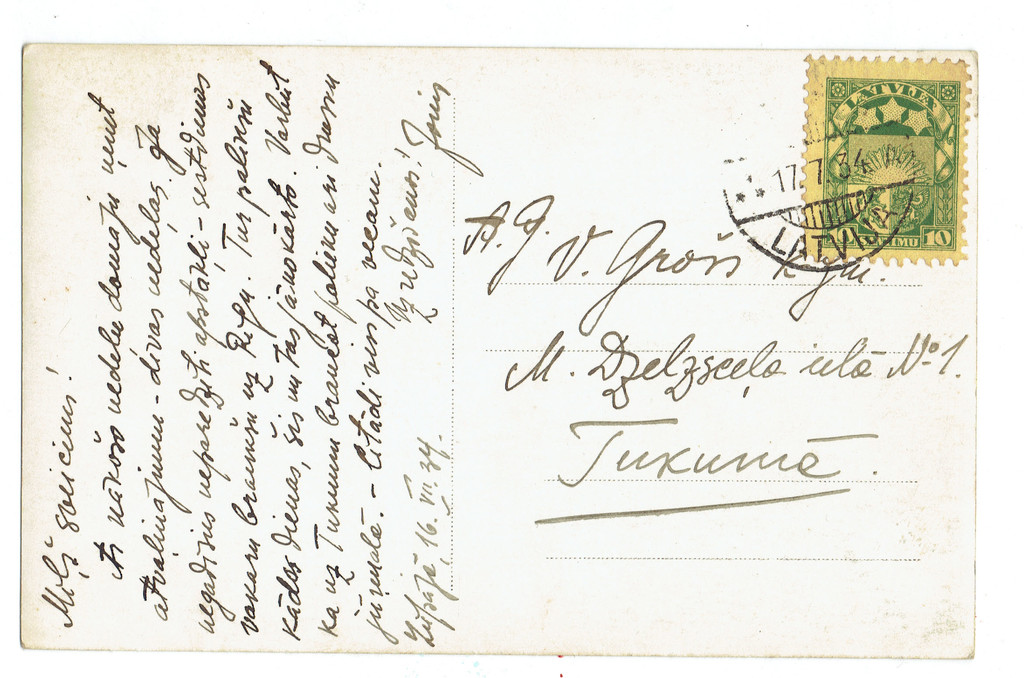 Mīļš sveiciens!
Ar nākošo nedēļu domāju ņemt
atvaļinājumu - divas nedēļas. Ja
negadīsies neparedzēti apstākļi - sestdienas
vakaru braukšu uz Rīgu. Tur palikšu
kādas dienas, šis un tas jānokārto. Varbūt
ka uz Tukumu braucot palieku arī dienu
jūrmalā. - Citādi viss pa vecam.
Uz redzēšanos! Jānis
Liepājā, 16. VII. 34.
LATVIJA
17.7.34
LATVIJA
10
A. g.
V. Grošs k gm.
M. Dzelzsceļa ielā No 1.
Tukumā.